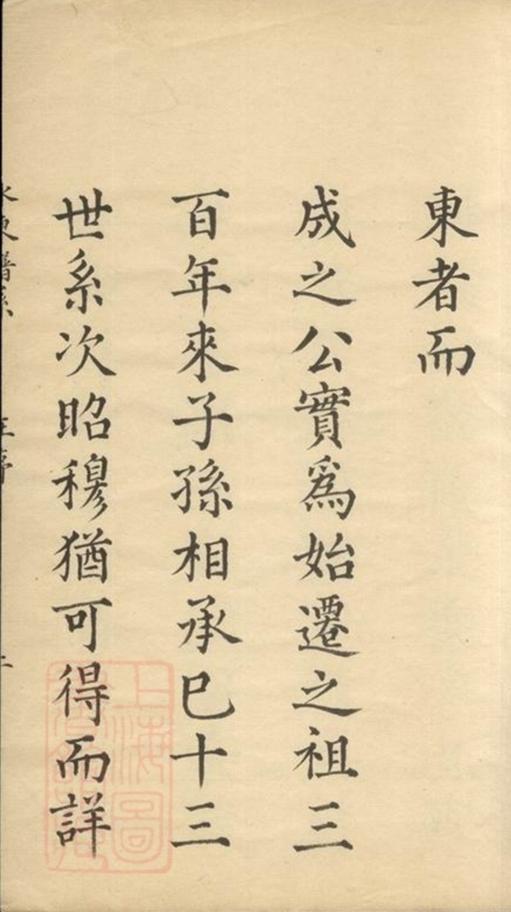 東者而
成之公實爲始遷之祖三
百年來子孫相承巳十三
世系次昭穆猶可得而詳
上海圖